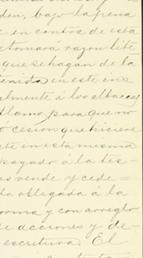 den, bajo la pena
e en contra de esta
tomará razon lite
que se hagan de la
en este en
almente á los albaceas
lamo, para que no
ó cesion que hiciere
te en esta misma
pagado á la tes-
vende y cede
da obligada á la
orma y con arreglo
e acciones y de-
escritura. El